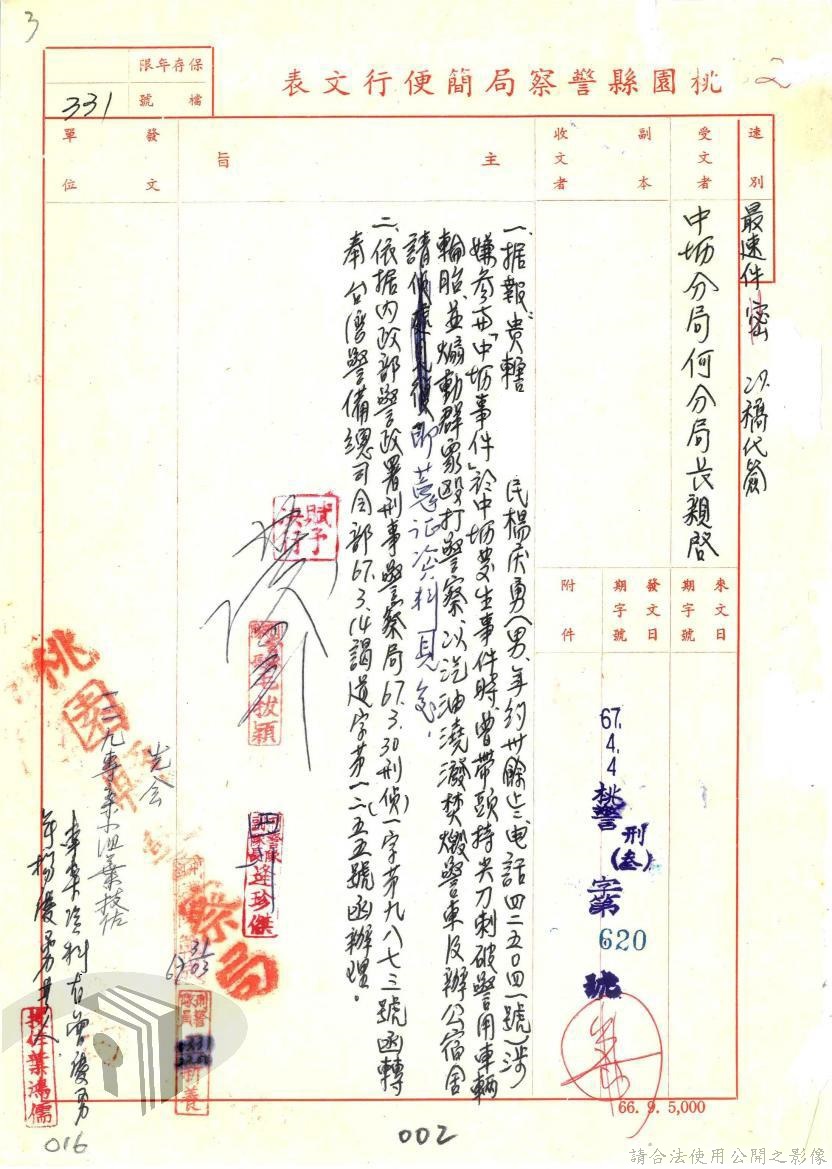 3
2
桃園縣警察局簡便行文表
保存年限
檔號
331
速別
最速件 密 以稿代簽
受文者
中坜分局何分局長親啓
副本
收文者
來文日期字號
發文日期字號
67.4.4
桃警刑(叁)字第
620
號
附件
主旨
一、据報貴轄 民楊庆勇(男、年約卅餘上、电話四二五〇四一號)涉
嫌参与「中坜事件」於中坜發生事件時、曾带頭持尖刀刺破警用車輛
輪胎、並煽動群眾毆打警察、以汽油澆潑焚燬警車及辦公宿舍
請 即蒐証資料見
二、依据内政部警政署刑事警察局67.3.30刑偵(一)字第九八七三號函轉
奉台湾警備總司令部67.3.14謁道字第一二五五號函辦理。
發文單位
賦予
決行
毛拔穎
逄珍傑
31/03
桃園
警察局
先会
專案资料右曾慶勇
技佐葉鴻儒
016
002
66.9.5,000
請合法使用公開之影像